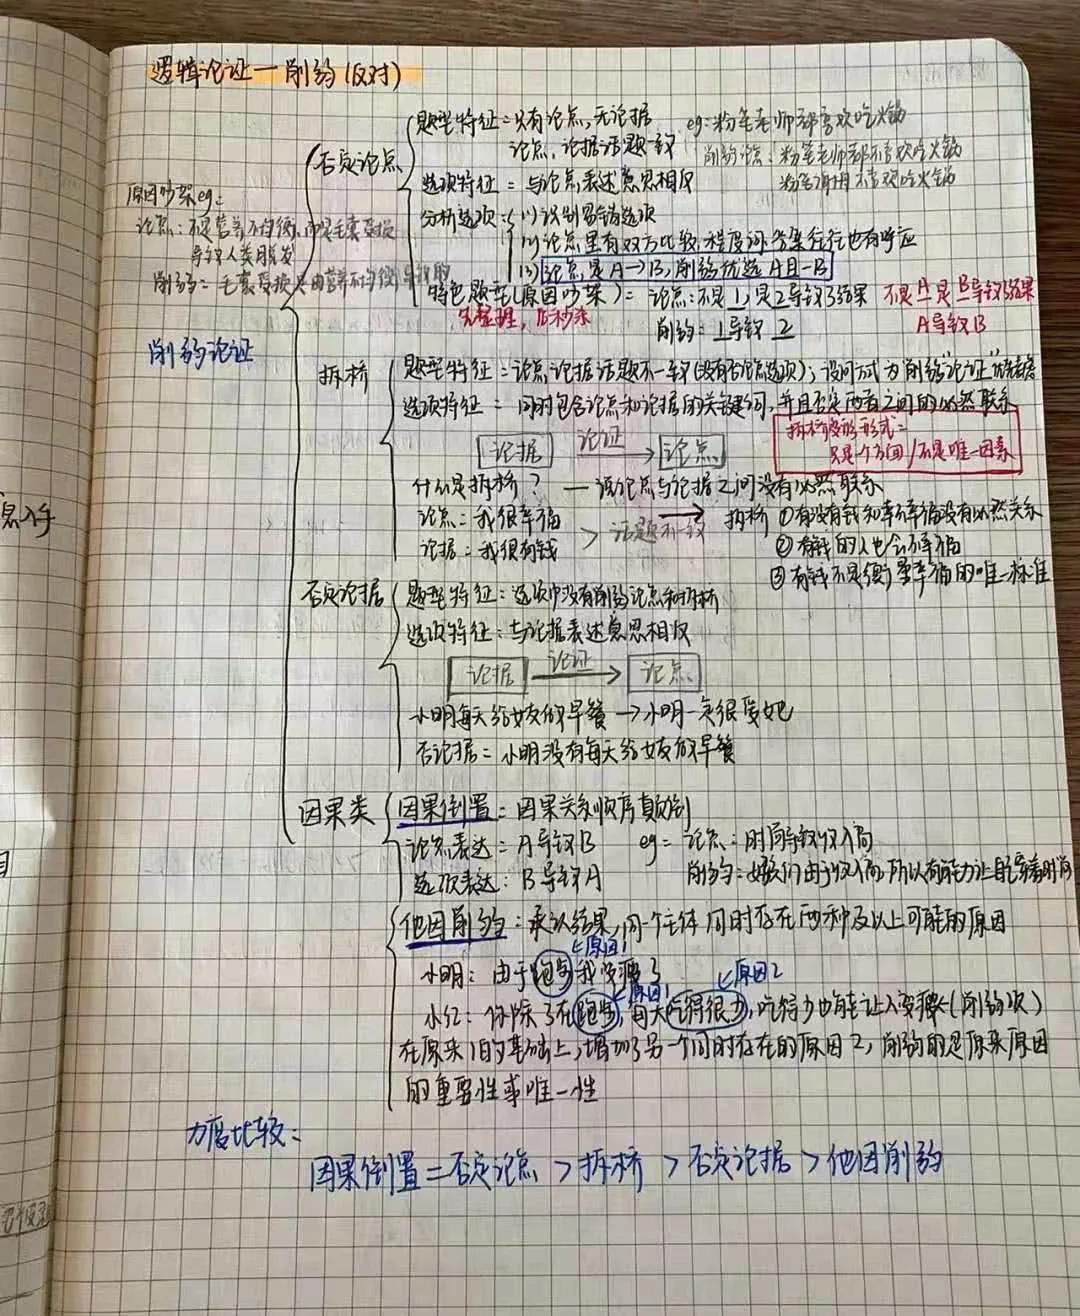 逻辑论证—削弱(反对)
否定论点
题型特征=只有论点,无论据
论点,论据话题一致
eg=粉笔老师都喜欢吃火锅
削弱论点:粉笔老师都不喜欢吃火锅
粉笔 不喜欢吃火锅
选项特征=与论点表达意思相反
分析选项:(1)识别易错选项
(2)论点里有双方比较,程度词,答案往往也有呼应
(3)论点是A→B,削弱优选A且-B
特色题型(原因吵架)=论点:不是1,是2导致了结果
削弱:1导致2
先整理,后秒杀
不是A是B导致结果
A导致B
原因吵架eg=
论点:不是营养不均衡,而是毛囊受损
导致人类脱发
削弱=毛囊受损是由营养不均衡导致的
削弱论证
拆桥
题型特征=论点论据话题不一致(没有否论点选项);设问方式为"削弱论证"优先考虑
选项特征=同时包含论点和论据的关键词,并且否定两者之间的必然联系
论据 论证 论点
拆桥变形形式=
只是个方面/不是唯一因素
什么是拆桥?—说论点与论据之间没有必然联系
论点:我很幸福
论据:我很有钱
话题不一致
拆桥 ①有没有钱和幸不幸福没有必然关系
②有钱的人也会不幸福
③有钱不是衡量幸福的唯一标准
否定论据
题型特征:选项中没有削弱论点和拆桥
选项特征:与论据表达意思相反
论据 论证 论点
小明每天给女友做早餐→小明一定很爱她
否论据=小明没有每天给女友做早餐
因果类
因果倒置=因果关系顺序颠倒
论点表达=A导致B
选项表达:B导致A
eg=论点:时尚导致收入高
削弱:她们由于收入高,所以有能力让自己穿着时尚
他因削弱:承认结果,同一个主体同时存在两种及以上可能的原因
原因1
小明:由于跑步我变瘦了
原因1
原因2
小红:你除了在跑步,每天吃得很少,吃得少也能让人变瘦(削弱项)
在原来1的基础上,增加了另一个同时存在的原因2,削弱的是原来原因
的重要性或唯一性
力度比较:
因果倒置=否定论点>拆桥>否定论据>他因削弱